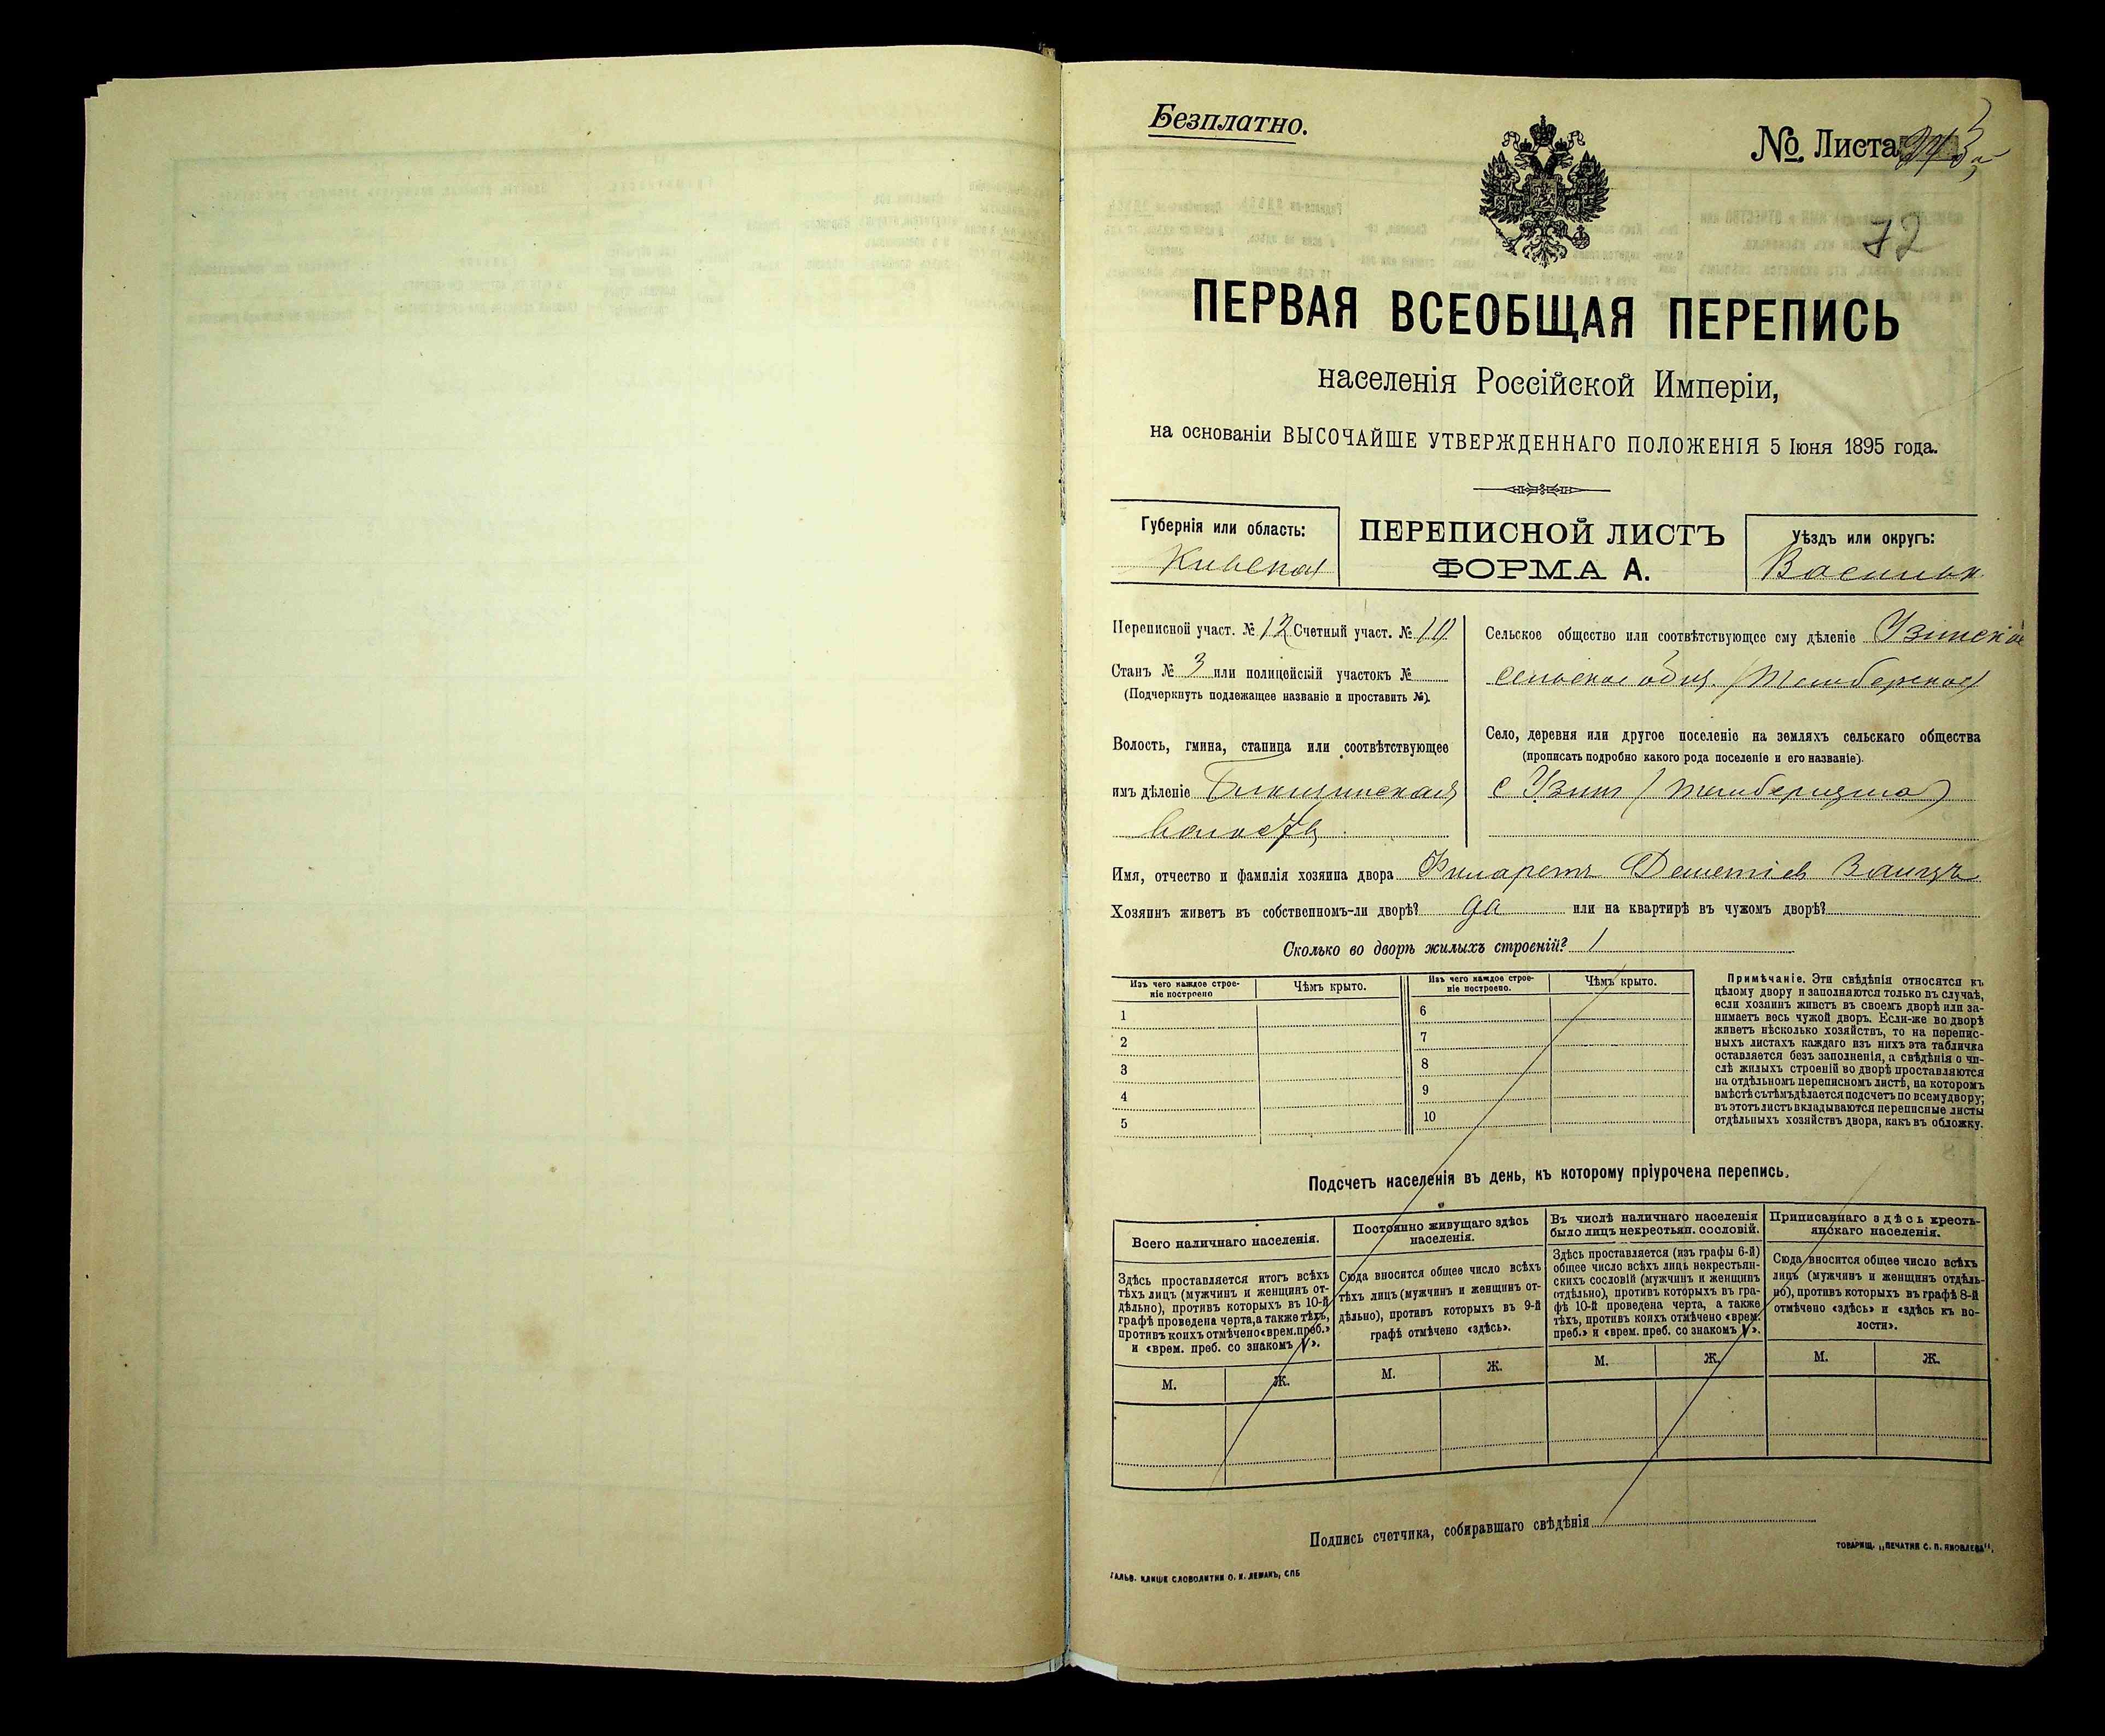 Безплатно.
№ Листа
72
ПЕРВАЯ ВСЕОБЩАЯ ПЕРЕПИСЬ
населенія Россійской Имперіи,
на основаніи ВЫСОЧАЙШЕ УТВЕРЖДЕННАГО ПОЛОЖЕНІЯ 5 Іюня 1895 года.
Губернія или область:
Киевская
ПЕРЕПИСНОЙ ЛИСТЪ
ФОРМА А.
Уѣздъ или округъ:
Васильк
Переписной участ. № 12 Счетный участ. № 10
Станъ № 3 или полицейскій участокъ №
(Подчеркнуть подлежащее названіе и проставить №).
Волость, гмина, станица или соотвѣтствующее
имъ дѣленіе
волость
Сельское общество или соотвѣтствующее ему дѣленіе Узинское
сельское общ.
Село, деревня или другое поселеніе на земляхъ сельскаго общества
(прописать подробно какого рода поселеніе и его названіе).
с Узин
Имя, отчество и фамилія хозяина двора Филаретъ Заицъ
Хозяинъ живетъ въ собственномъ-ли дворѣ? да или на квартирѣ въ чужомъ дворѣ?
Сколько во дворѣ жилыхъ строеній? 1
Изъ чего каждое строе-
ніе построено
Чѣмъ крыто.
Изъ чего каждое строе-
ніе построено.
Чѣмъ крыто.
1
2
3
4
5
6
7
8
9
10
Примѣчаніе. Эти свѣдѣнія относятся къ
цѣлому двору и заполняются только въ случаѣ,
если хозяинъ живетъ въ своемъ дворѣ или за-
нимаетъ весь чужой дворъ. Если-же во дворѣ
живетъ нѣсколько хозяйствъ, то на перепис-
ныхъ листахъ каждаго изъ нихъ эта табличка
оставляется безъ заполненія, а свѣдѣнія о чи-
слѣ жилыхъ строеній во дворѣ проставляются
на отдѣльномъ переписномъ листѣ, на которомъ
вмѣстѣ съ тѣмъ дѣлается подсчетъ по всему двору;
въ этотъ листъ вкладываются переписные листы
отдѣльныхъ хозяйствъ двора, какъ въ обложку.
Подсчетъ населенія въ день, къ которому пріурочена перепись.
Всего наличнаго населенія.
Здѣсь проставляется итогъ всѣхъ
тѣхъ лицъ (мужчинъ и женщинъ от-
дѣльно), противъ которыхъ въ 10-й
графѣ проведена черта, а также тѣхъ,
противъ коихъ отмѣчено «врем. преб.»
и «врем. преб. со знакомъ V».
М.
Ж.
Постоянно живущаго здѣсь
населенія.
Сюда вносится общее число всѣхъ
тѣхъ лицъ (мужчинъ и женщинъ от-
дѣльно), противъ которыхъ въ 9-й
графѣ отмѣчено «здѣсь».
М.
Ж.
Въ числѣ наличнаго населенія
было лицъ некрестьян. сословій.
Здѣсь проставляется (изъ графы 6-й)
общее число всѣхъ лицъ некрестьян-
скихъ сословій (мужчинъ и женщинъ
отдѣльно), противъ которыхъ въ гра-
фѣ 10-й проведена черта, а также
тѣхъ, противъ коихъ отмѣчено «врем.
преб.» и «врем. преб. со знакомъ V».
М.
Ж.
Приписаннаго здѣсь кресть-
янскаго населенія.
Сюда вносится общее число всѣхъ
лицъ (мужчинъ и женщинъ отдѣль-
но), противъ которыхъ въ графѣ 8-й
отмѣчено «здѣсь» и «здѣсь къ во-
лости».
М.
Ж.
Подпись счетчика, собиравшаго свѣдѣнія
ТОВАРИЩ. „ПЕЧАТНЯ С. П. ЯКОВЛЕВА".
ГАЛЬВ. КЛИШЕ СЛОВОЛИТНИ О. И. ЛЕМАНЪ, СПБ